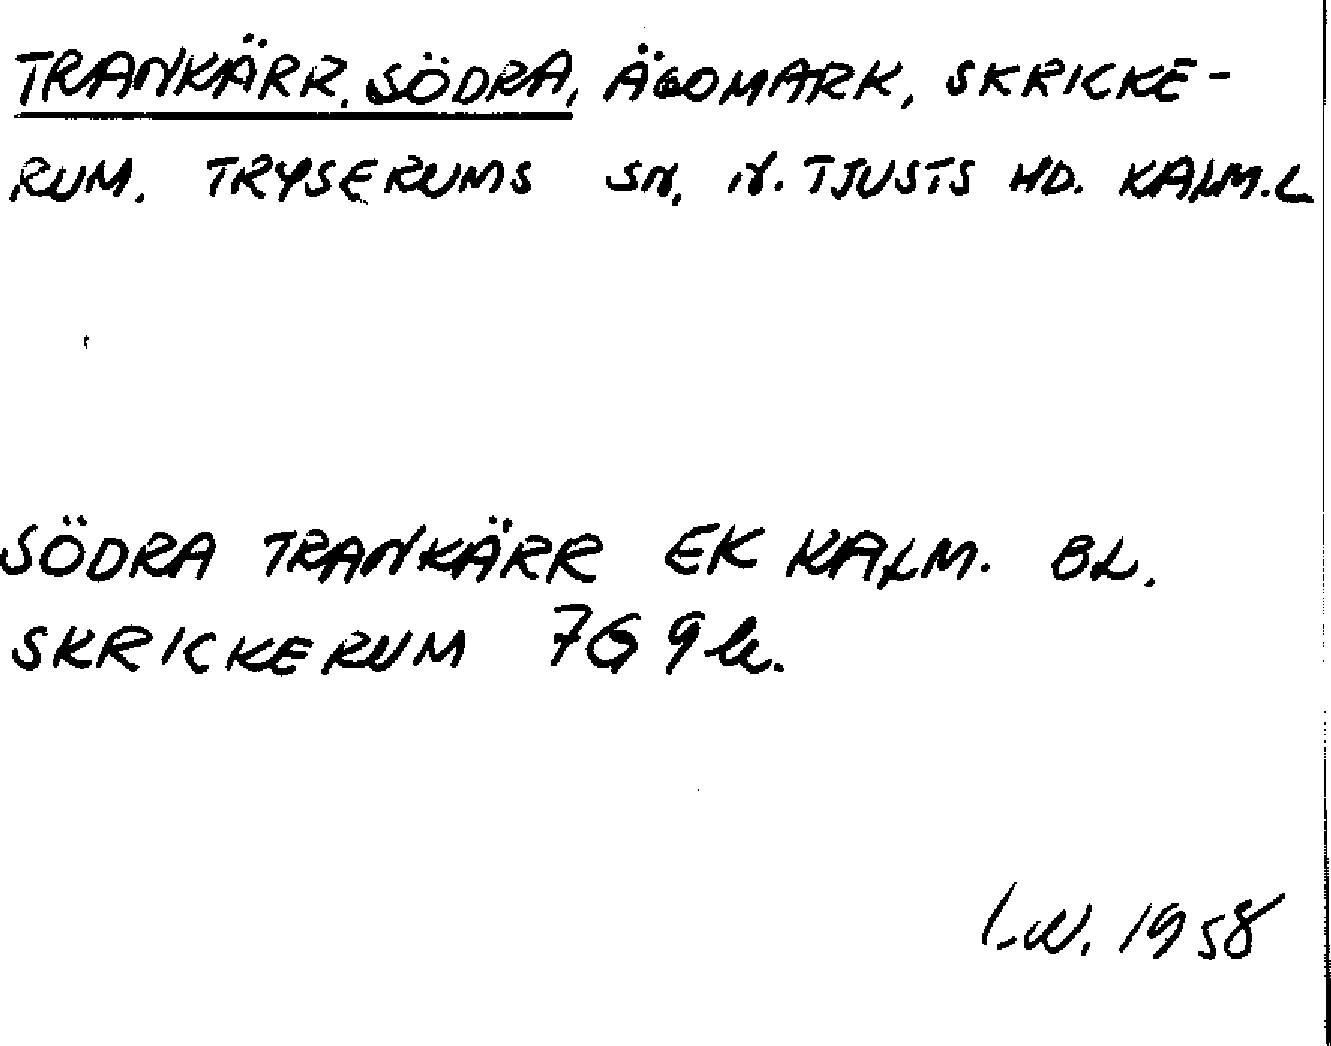 TRANKÄRR, SÖDRA, ÄGOMARK, SKRICKE-
RUM. TRYSERUMS SN, N. TJUSTS HD. KALM.L
SÖDRA TRANKÄRR EK KALM. BL.
SKRICKERUM 7G 9h.
1958